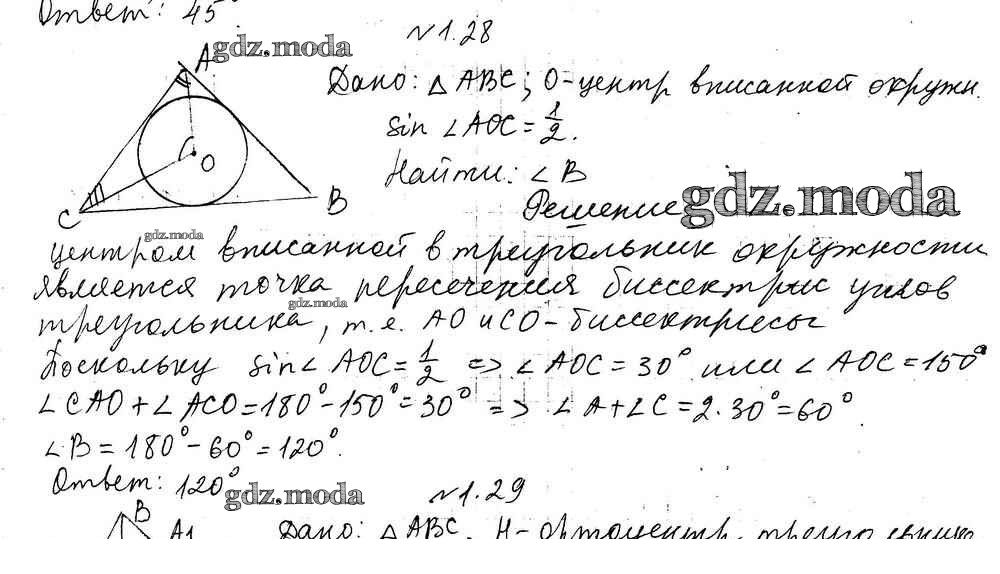 Ответ: 45°
№1.28
gdz.moda
A
Дано: △ ABC; O-центр вписанной окружн.
sin ∠AOC = 1/2.
Найти: ∠B
O
C
B
Решение
gdz.moda
gdz.moda
Центром вписанной в треугольник окружности
является точка пересечения биссектрис углов
gdz.moda
треугольника, т.е. AO и CO-биссектрисы
Поскольку sin∠AOC = 1/2 => ∠AOC = 30° или ∠AOC = 150°
∠CAO + ∠ACO = 180° - 150° = 30° => ∠A + ∠C = 2·30° = 60°
∠B = 180° - 60° = 120°.
Ответ: 120°
gdz.moda
№1.29
B
A1
Дано: △ABC, H-ортоцентр, треугольника